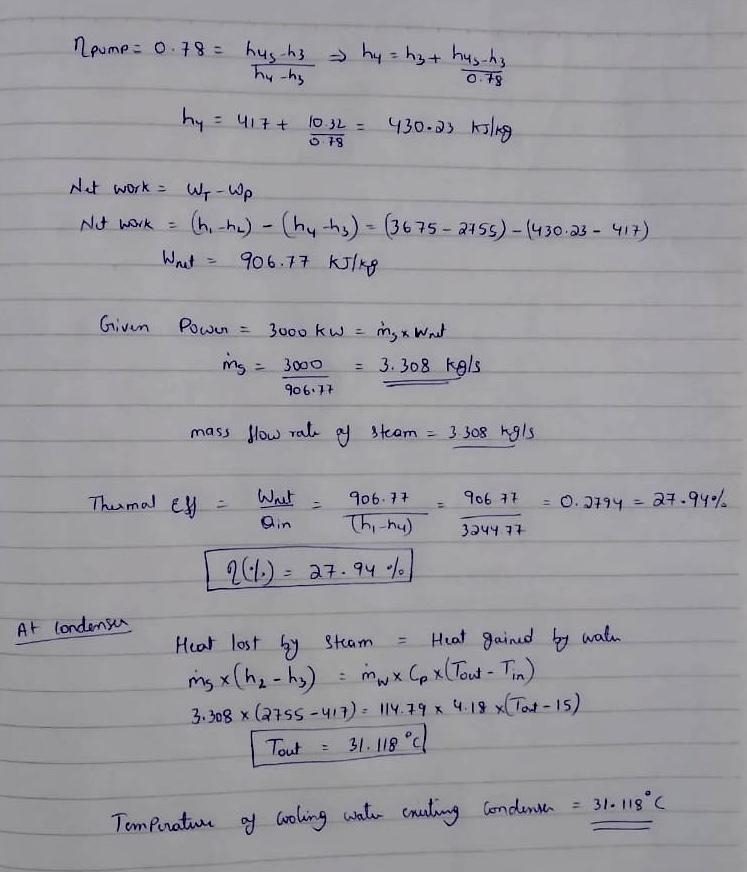 η pump = 0.78 = h4s-h3 / h4-h3 ⇒ h4 = h3 + h4s-h3 / 0.78
h4 = 417 + 10.32 / 0.78 = 430.23 KJ/kg
Net work = WT - Wp
Net work = (h1-h2) - (h4-h3) = (3675 - 2755) - (430.23 - 417)
Wnet = 906.77 KJ/kg
Given Power = 3000 kW = ṁs x Wnet
ṁs = 3000 / 906.77 = 3.308 kg/s
mass flow rate of steam = 3.308 kg/s
Thermal Eff = Wnet / Qin = 906.77 / (h1-h4) = 906.77 / 3244.77 = 0.2794 = 27.94%
η(%) = 27.94 %
At Condenser
Heat lost by steam = Heat gained by water
ṁs x (h2 - h3) = ṁw x Cp x (Tout - Tin)
3.308 x (2755 - 417) = 114.79 x 4.18 x (Tout - 15)
Tout = 31.118 °C
Temperature of cooling water exiting condenser = 31.118°C